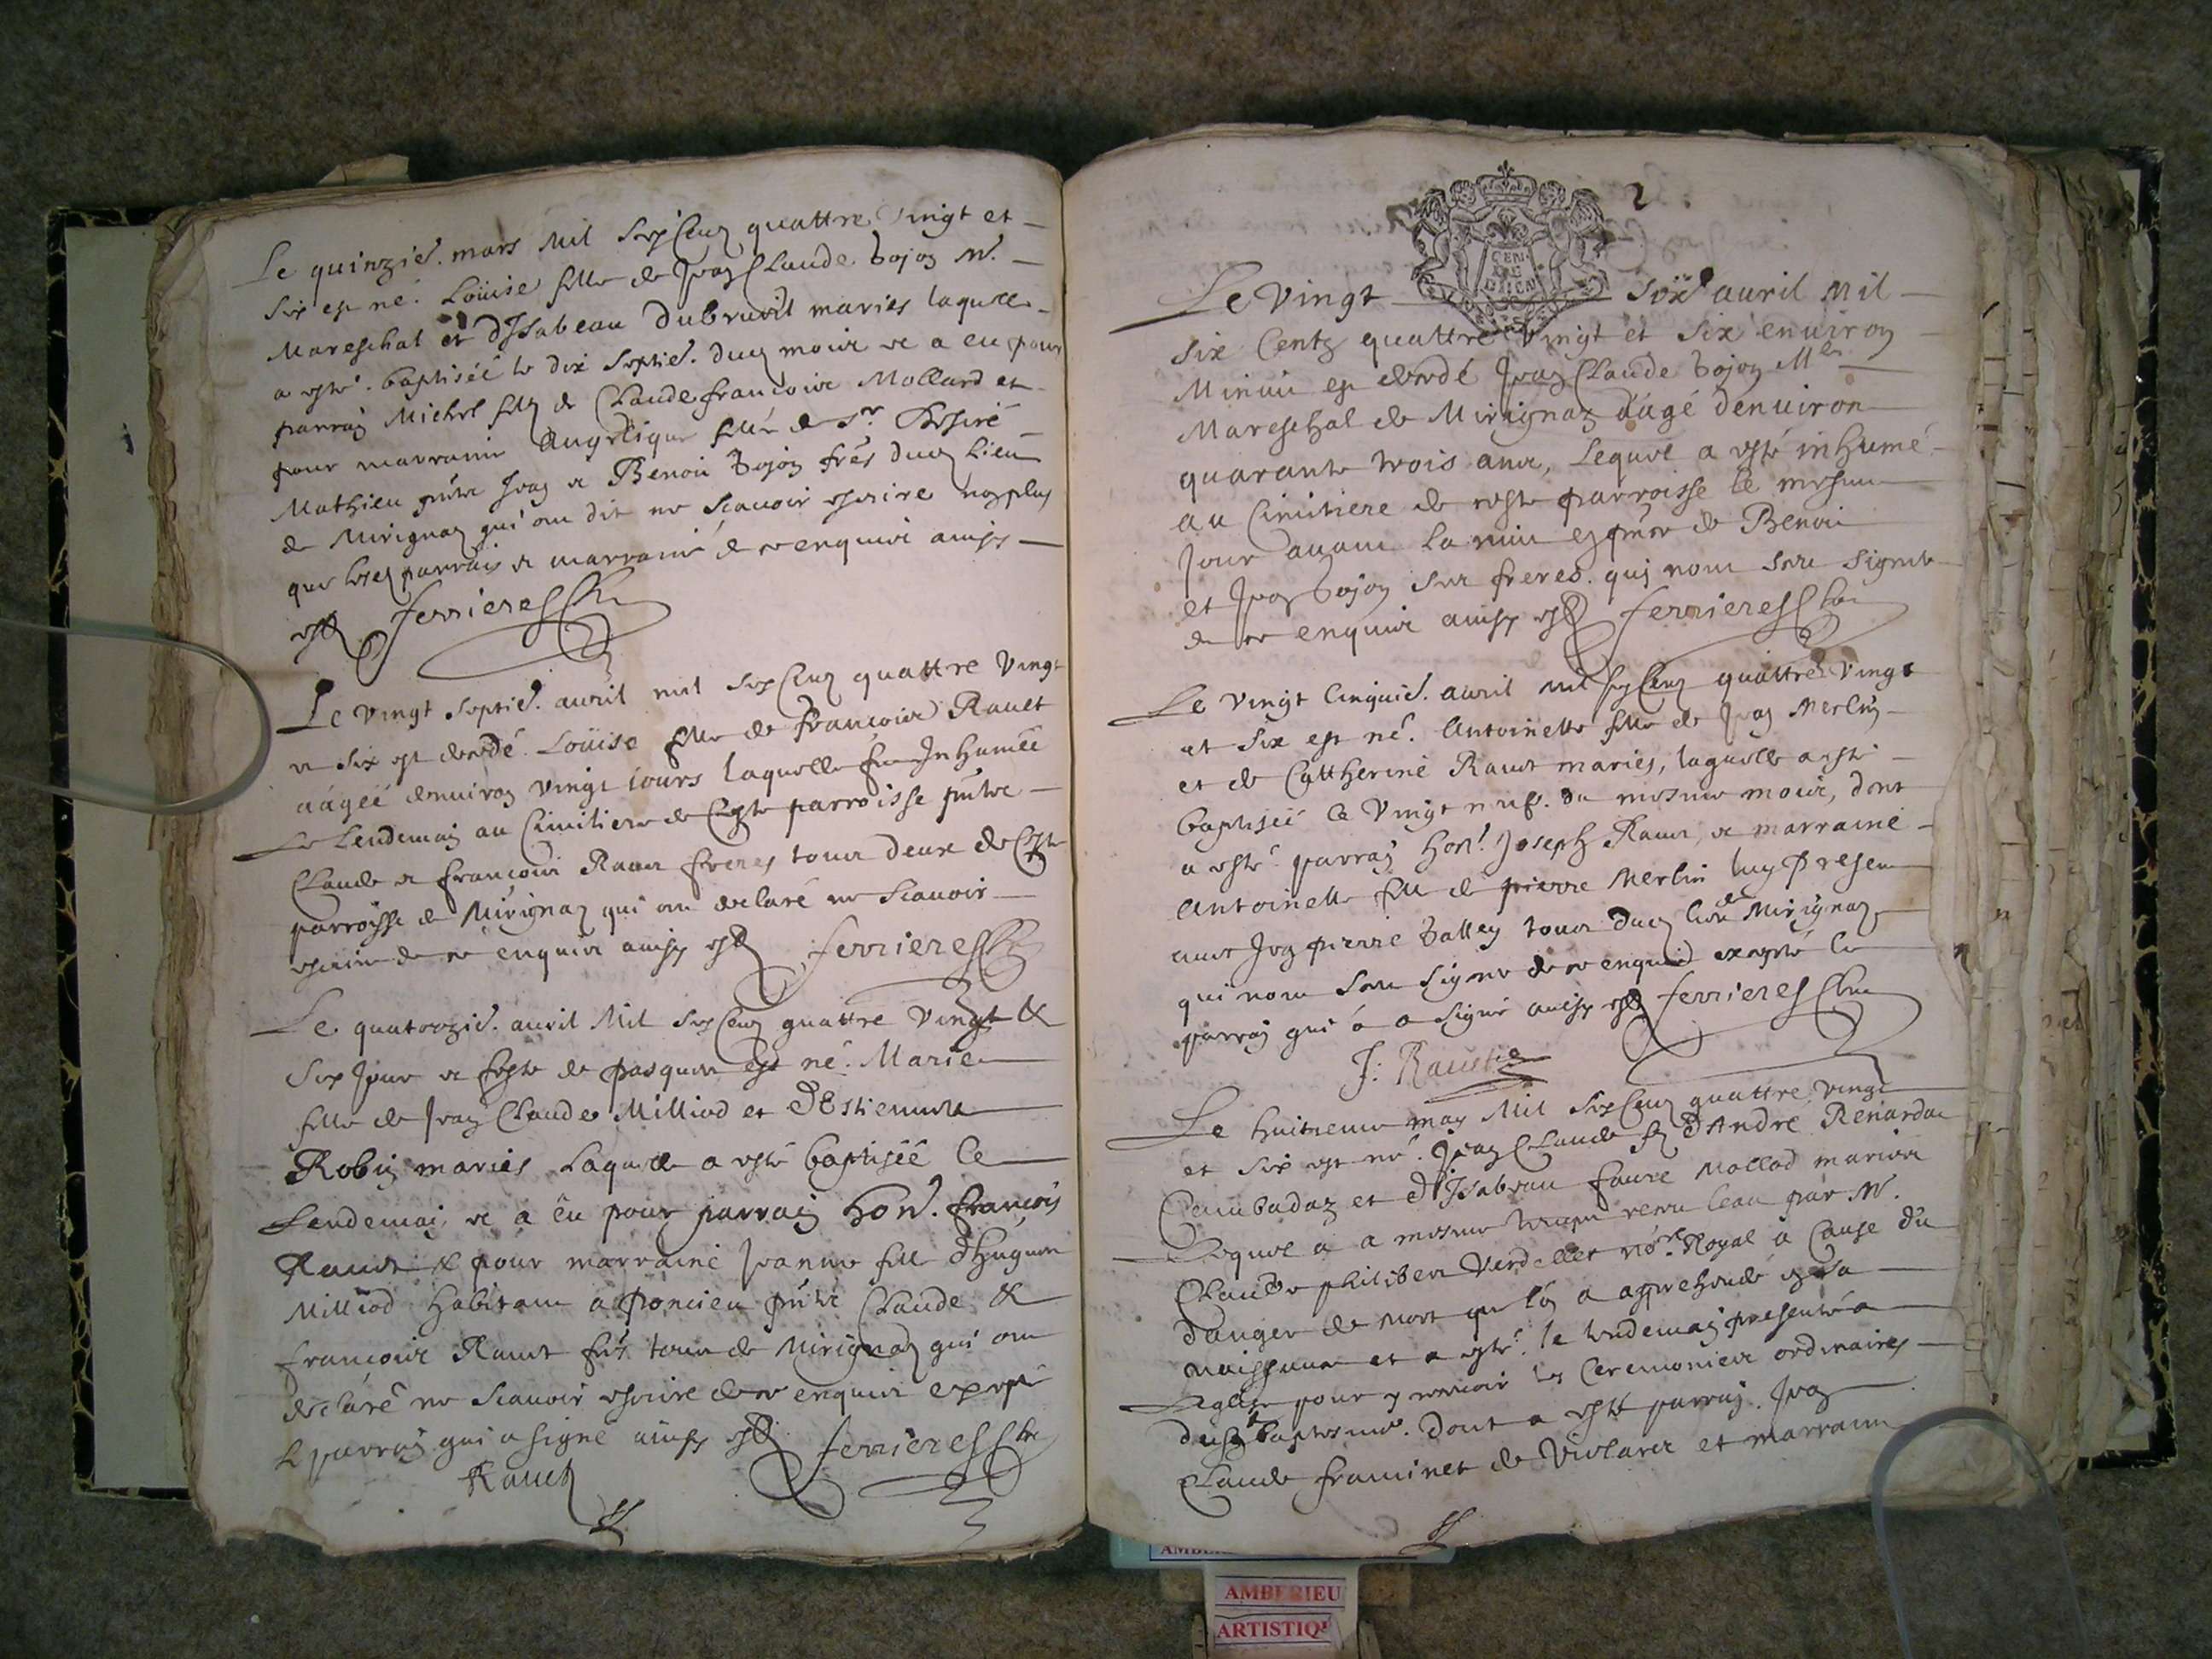 Le quinzie. mars Mil six Cens quattre vingt et
six est né. Loüise fille de Jean Claude Bojon M.
Mareschal et d'Isabeau Dubrueil maries laquelle
a esté baptisée le dix septie. dud moix et a eu pour
parrain Michel fils de Claude françoix Mollard et
pour marraine Angelique fille de Sr
Mathieu pnte Jean et Benoit Bojon fres dud Lieu
de Mirignaz qui ont dit ne scauoir escrire nonplus
que lesd parrain et marraine de ce enquix ainsy
est ferrieres
Le vingt septie. auril mil six Cens quattre vingt
et six est decedé Loüise fille de francoix Rauet
aâgée denuiron vingt iours laquelle fut Inhumée
Le Lendemain au Cimitiere de Ceste parroisse pnte
Claude et francoix Rauet freres toux deux de Ceste
parroisse de Mirignaz qui ont declaré ne Scauoir
escrire de ce enquix ainsy est ferrieres
Le quatorzie. auril Mil six Cens quattre vingt &
Six Jour et feste de pasques est né. Marie
fille de Jean Claude Milliod et d'Estiennette
Robin maries Laquelle a esté baptisée le
Lendemain et a eu pour parrain Hon. francois
Rauet & pour marraine Jeanne fille d'Hugues
Milliod Habitant a Poncieu pnte Claude &
francoix Rauet fres toux de Mirignaz qui ont
declaré ne Scauoir escrire de ce enquix excepté
le parrain qui a signé ainsy est ferrieres
Rauet
2
CEN
Le Vingt Six auril Mil
Six Centz quattre Vingt et Six enuiron
Minuit est decedé Jean Claude Bojon M
Mareschal de Mirignaz aagé denuiron
quarante trois ans, Lequel a esté inhumé
au Cimitiere de ceste parroisse le mesme
Jour auant la nuit en pnce de Benoit
et Jean Bojon ses freres. qui nont sceu signer
de ce enquix ainsy est ferrieres
Le Vingt Cinquie. auril mil six Cens quattre Vingt
et Six est né. Antoinette fille de Jean Merlin
et de Cattherine Rauet maries, laquelle a esté
baptisée le Vingt neuf. du mesme moix, dont
a esté parrain Hon. Joseph Rauet, et marraine
Antoinette fille de pierre Merlin luy present
auec Jean pierre Balley toux dud lieu de Mirignaz
qui nont sceu signer de ce enquis excepté le
parrain qui a signé ainsy est ferrieres
J: Rauet
Le huitieme may Mil Six Cens quattre vingt
et six est né. Jean Claude fz d'André Renardat
Cambadaz et d'Isabeau faure Mollod mariés
Lequel a a mesme temps receu leau par M.
Claude philibert Verdellet nore. Royal a Cause du
danger de mort que lon a apprehendé en sa
naissance et a esté le lendemain presenté a
Leglise pour y receuoir les Ceremonies ordinaires
dud baptesme. Dont a esté parrain Jean
Claude franinet de et marraine
AMBERIEU
ARTISTIQ